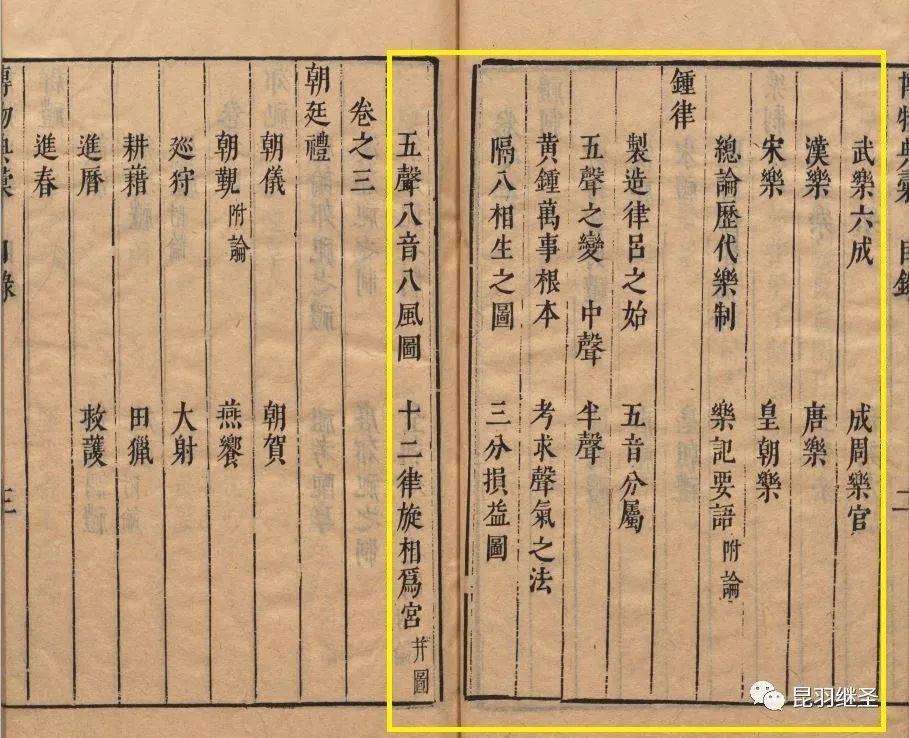 博物典彙 目錄 二
武樂六成 成周樂官
漢樂 唐樂
宋樂 皇朝樂
總論歷代樂制 樂記要語附論
鍾律
製造律呂之始 五音分屬
五聲之變 中聲 半聲
黃鍾萬事根本 考求聲氣之法
隔八相生之圖 三分損益圖
五聲八音八風圖 十二律旋相爲宮并圖
卷之三
朝廷禮
朝儀 朝賀
朝覲附論 燕饗
廵狩 大射
耕藉 田獵
進曆 救護
進春
博物典彙 目錄 三
昆羽继圣